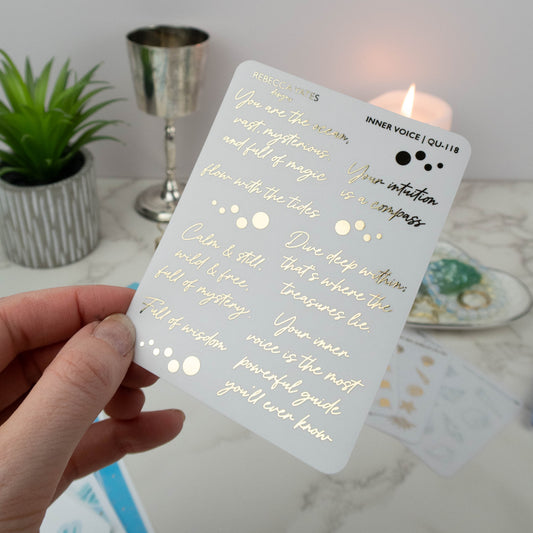 REBECCA YATES
design
INNER VOICE | QU-118
You are the ocean,
vast, mysterious,
and full of magic
Your intuition
is a compass
flow with the tides
Calm & still,
wild & free,
full of mystery
Dive deep within;
that's where the
treasures lie
Full of wisdom
Your inner
voice is the most
powerful guide
you'll ever know